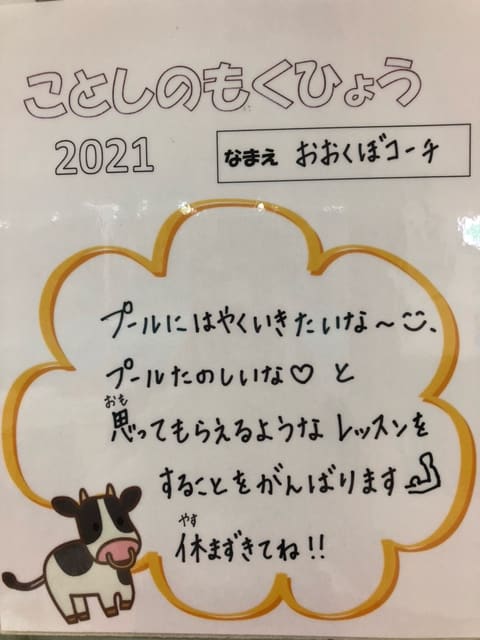 ことしのもくひょう
2021
なまえ おおくぼコーチ
プールにはやくいきたいな～
プールたのしいな♡ と
おも
思ってもらえるような レッスンを
することをがんばります
やす
休まずきてね!!